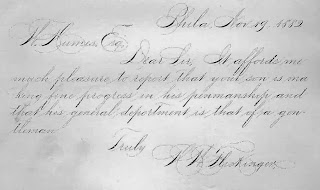 Phila, Nov 19, 1882
Esq,
Dear Sir, It affords me
much pleasure to report that your son is ma
king fine progress in his penmanship, and
that his general department is, that of a gen
tleman.
Truly
H. W. Flickinger